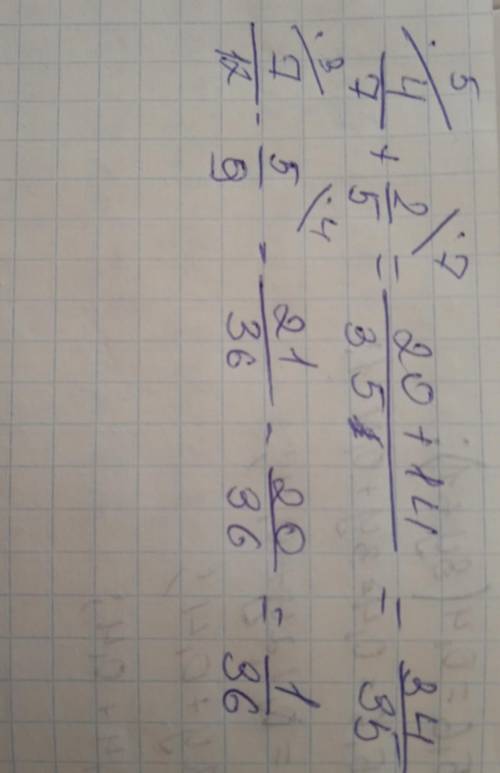 4/7 /·5 + 2/5 /·7 = 20+14/35 = 34/35
7/12 /·3 - 5/9 /·4 = 21/36 - 20/36 = 1/36